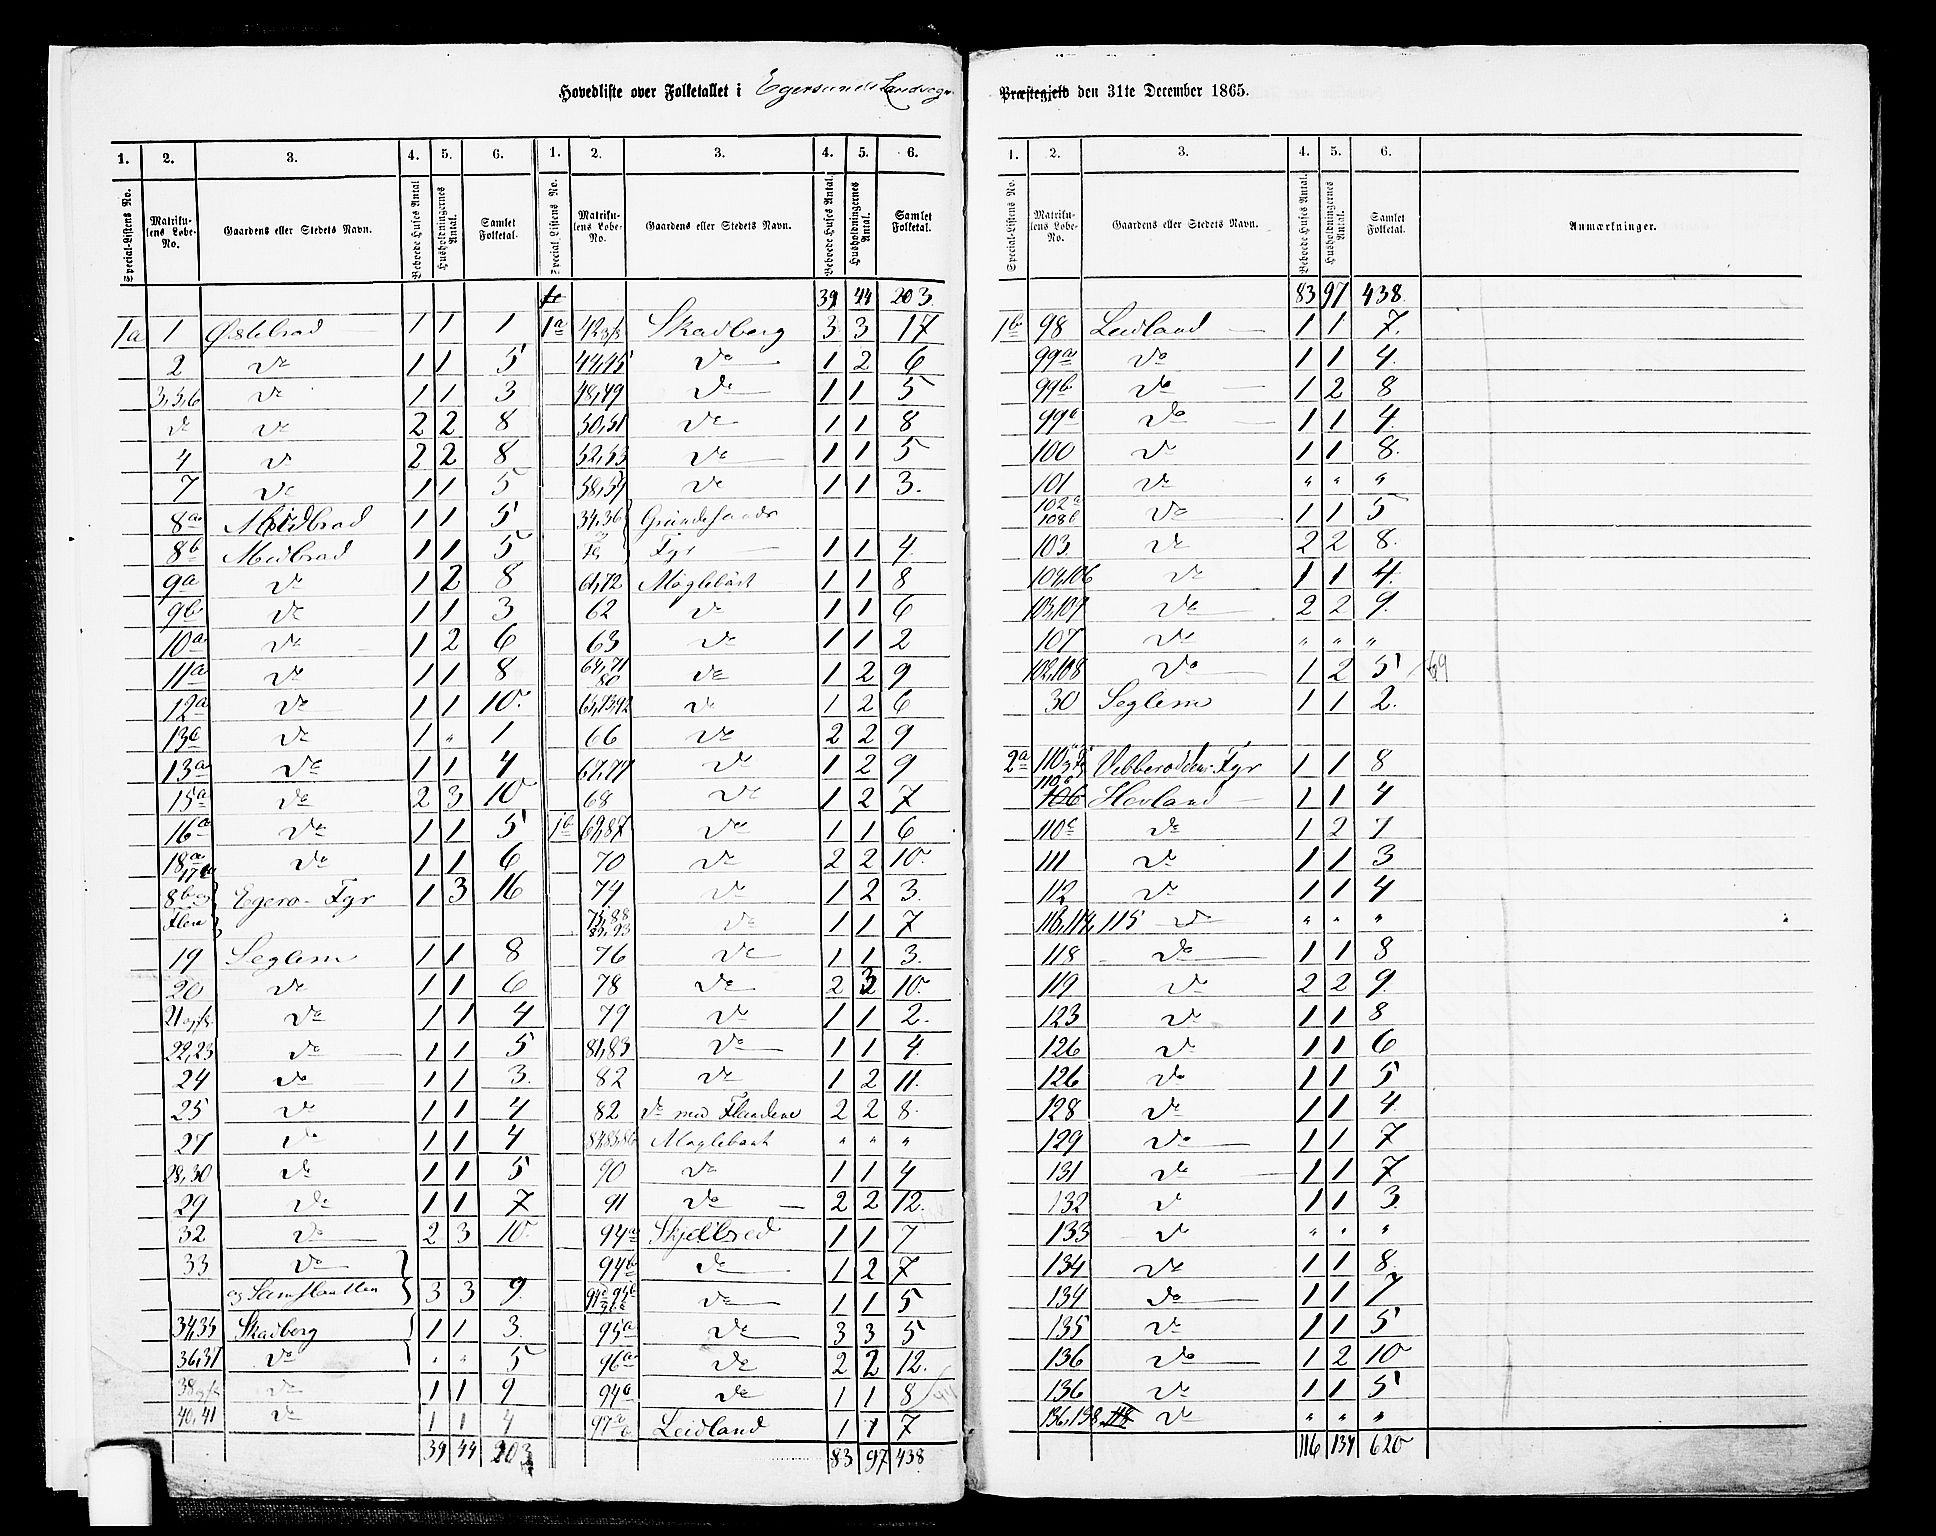 Hovedliste over Folketallet i Egersunds Landsogn
Præstegjeld den 31te December 1865.
1. 2. 3. 4. 5. 6. 1. 2. 3. 4. 5. 6.
Special-Listens No. Matrikulens Løbe-No. Gaardens eller Stedets Navn. Beboede Huses Antal Husholdningernes Antal. Samlet Folketal. Special-Listens No. Matrikulens Løbe-No. Gaardens eller Stedets Navn. Beboede Huses Antal. Husholdningernes Antal. Samlet Folketal.
1a 1 Østebrød 1 1 1
2 do 1 1 5
3,5,6 do 1 1 3
do do 2 2 8
4 do 2 2 8
7 do 1 1 5
8a Midbrød 1 1 5
8b Midbrød 1 1 5
9a do 1 2 8
9b do 1 1 3
10a do 1 2 6
11a do 1 1 8
12a do 1 1 10
13a do 1 " 1
13a do 1 1 4
15a do 2 3 10
16a do 1 1 5
18a 17a do 1 1 6
8b og Flere Egerø Fyr 1 3 16
19 Seglem 1 1 8
20 do 1 1 6
21 do 1 1 4
22,23 do 1 1 5
24 do 1 1 3
25 do 1 1 4
27 do 1 1 4
28,30 do 1 1 5
29 do 1 1 7
32 do 2 3 10
33 do
og 3 3 9
34,35 Skadberg 1 1 3
36,37 do " " 5
38 do 1 1 9
40,41 do 1 1 4
39 44 203
39 44 203
1a 42 Skadberg 3 3 17
44,45 do 1 2 6
48,49 do 1 1 5
50,51 do 1 1 8
52,53 do 1 1 5
58,59 do 1 1 3
34,36 Grundesunds
Fyr 1 1 4
61,72 Møglebøst 1 1 8
62 do 1 1 6
63 do 1 1 2
64,71 80 do 1 2 9
do 1 2 6
66 do 2 2 9
67,77 do 1 2 9
68 do 1 2 7
1b 69,87 do 1 1 6
70 do 2 2 10
74 do 1 2 3
do 1 1 7
76 do 1 1 3
78 do 2 2 10
79 do 1 1 2
81,83 do 1 1 4
82 do 1 2 11
82 do med 2 2 8
84,85,86 Møglebøst " " "
90 do 1 1 4
91 do 2 2 12
94a Skjelbred 1 1 7
94b do 1 2 7
do 1 1 5
95a do 3 3 5
96a do 2 2 12
94a do 1 1 8
97a b Leidland 1 1 7
83 97 438
1. 2. 3. 4. 5. 6.
Special-Listens No. Matrikulens Løbe-No. Gaardens eller Stedets Navn. Beboede Huses Antal. Husholdningernes Antal. Samlet Folketal. Anmærkninger.
83 97 438
1b 98 Leidland 1 1 7
99a do 1 1 4
99b do 1 2 8
99a do 1 1 4
100 do 1 1 8
101 do " " "
102a 108b do 1 1 5
103 do 2 2 8
104,106 do 1 1 4
105,109 do 2 2 9
107 do " " "
102,108 do 1 2 5 69
30 Seglem 1 1 2
2a 110 Vibberoddens Fyr 1 1 8
110a 106 Hovland 1 1 4
110c do 1 2 7
111 do 1 1 3
112 do 1 1 4
113,114,115 do " " "
118 do 1 1 3
119 do 2 2 9
123 do 1 1 8
126 do 1 1 6
126 do 1 1 5
128 do 1 1 4
129 do 1 1 7
131 do 1 1 7
132 do 1 1 3
133 do " " "
134 do 1 1 8
134 do 1 1 7
135 do 1 1 5
136 do 1 2 10
136 do 1 1 5
136,138 do " " "
116 134 620